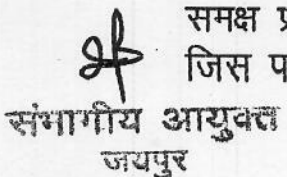 समक्ष
जिस
संभागीय आयुक्त
जयपुर